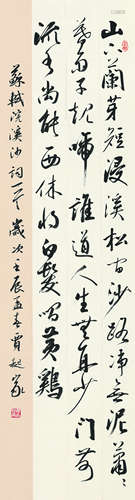 山下蘭芽短浸溪松間沙路净無泥蕭〻
暮雨子規啼誰道人生無再少門前
流水尚能西休將白髮唱黃雞
蘇軾浣溪沙詞一首歲次壬辰孟春賈起家